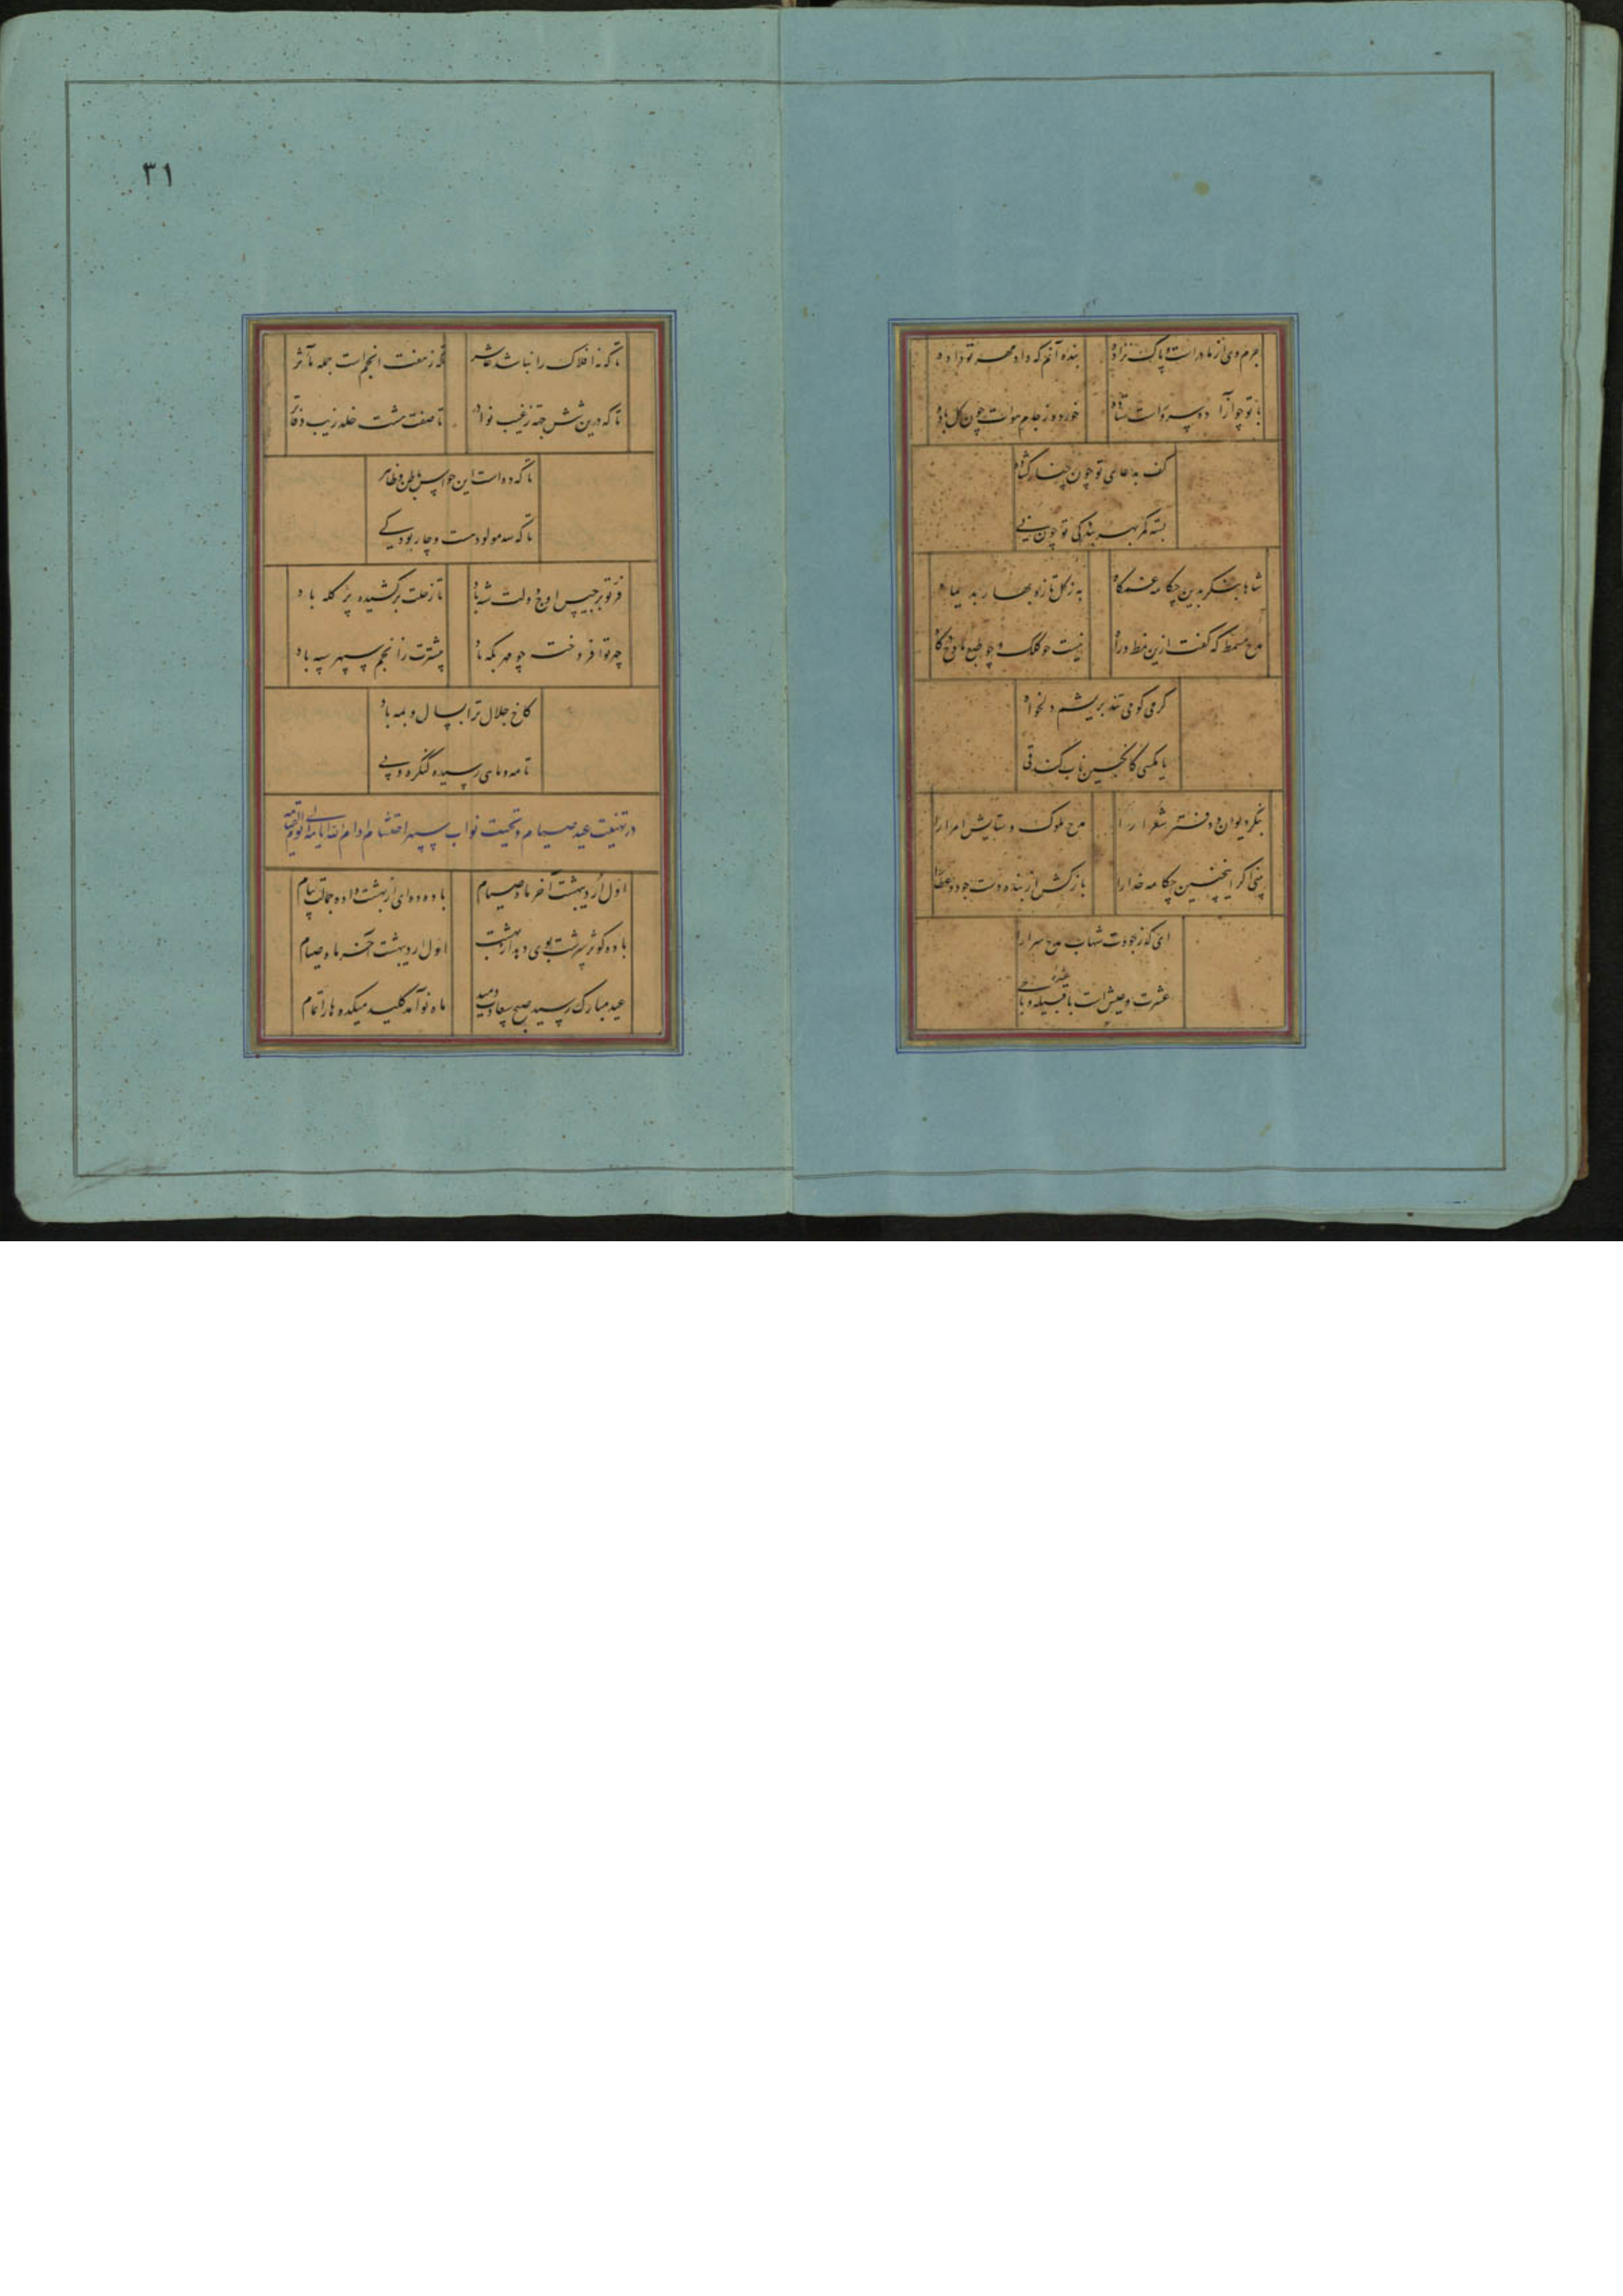 بنده آنم که داد مهر تو داده
خورده ز جام موات چون گل باده
کف به دعای تو چون چنار گشاده
بسته کمر بهر بندگی تو چون نی
شاها بنگر بدین چکامه
به ز گل تازه و بهار
مدح مسمط که گفت ازین نمط و را
نیست چو کلک و چو طبع مادح
کرمی کو می تند بریشم دلخواه
یا مگسی کانگبین ناب کند قی
بنگر دیوان و دفتر شعرا را
مدح ملوک و ستایش امرا را
بینی اگر اینچنین چکامه خدا را
باز کش از بنده دست جود و عطا را
ای که ز جودت شهاب مدح سرا را
عشرت و عیش است با قبیله و با حی
۳۱
تا که نه افلاک را نباشد عاشر
تا که ز هفت انجم است جمله مآثر
تا که درین شش جهة ز غیب نوادر
تا صفت هشت خلد زیب دفاتر
تا که ده است این حواس باطن و ظاهر
تا که سه مولود هست و چار بود کی
فر تو برجیس اوج دولت شه باد
تا زحلت برکشیده پر کله باد
چهر تو افروخته چو مهر بگه باد
مشترت ز انجم سپهر سپه باد
کاخ جلال ترا بسال و بمه باد
تا مه و ماهی رسیده کنگره و پی
در تهنیت عید صیام و تحیت نواب سپهر احتشام ادام الله ایامه الی یوم القیامه
اول اردیبهشت آخر ماه صیام
باده ده ای از بهشت داده جمالت پیام
باده کوثر سرشت بوی ده
اول اردیبهشت آخر ماه صیام
عید مبارک رسید صبح سعادت دمید
ماه نو آمد کلید میکده ها را تمام